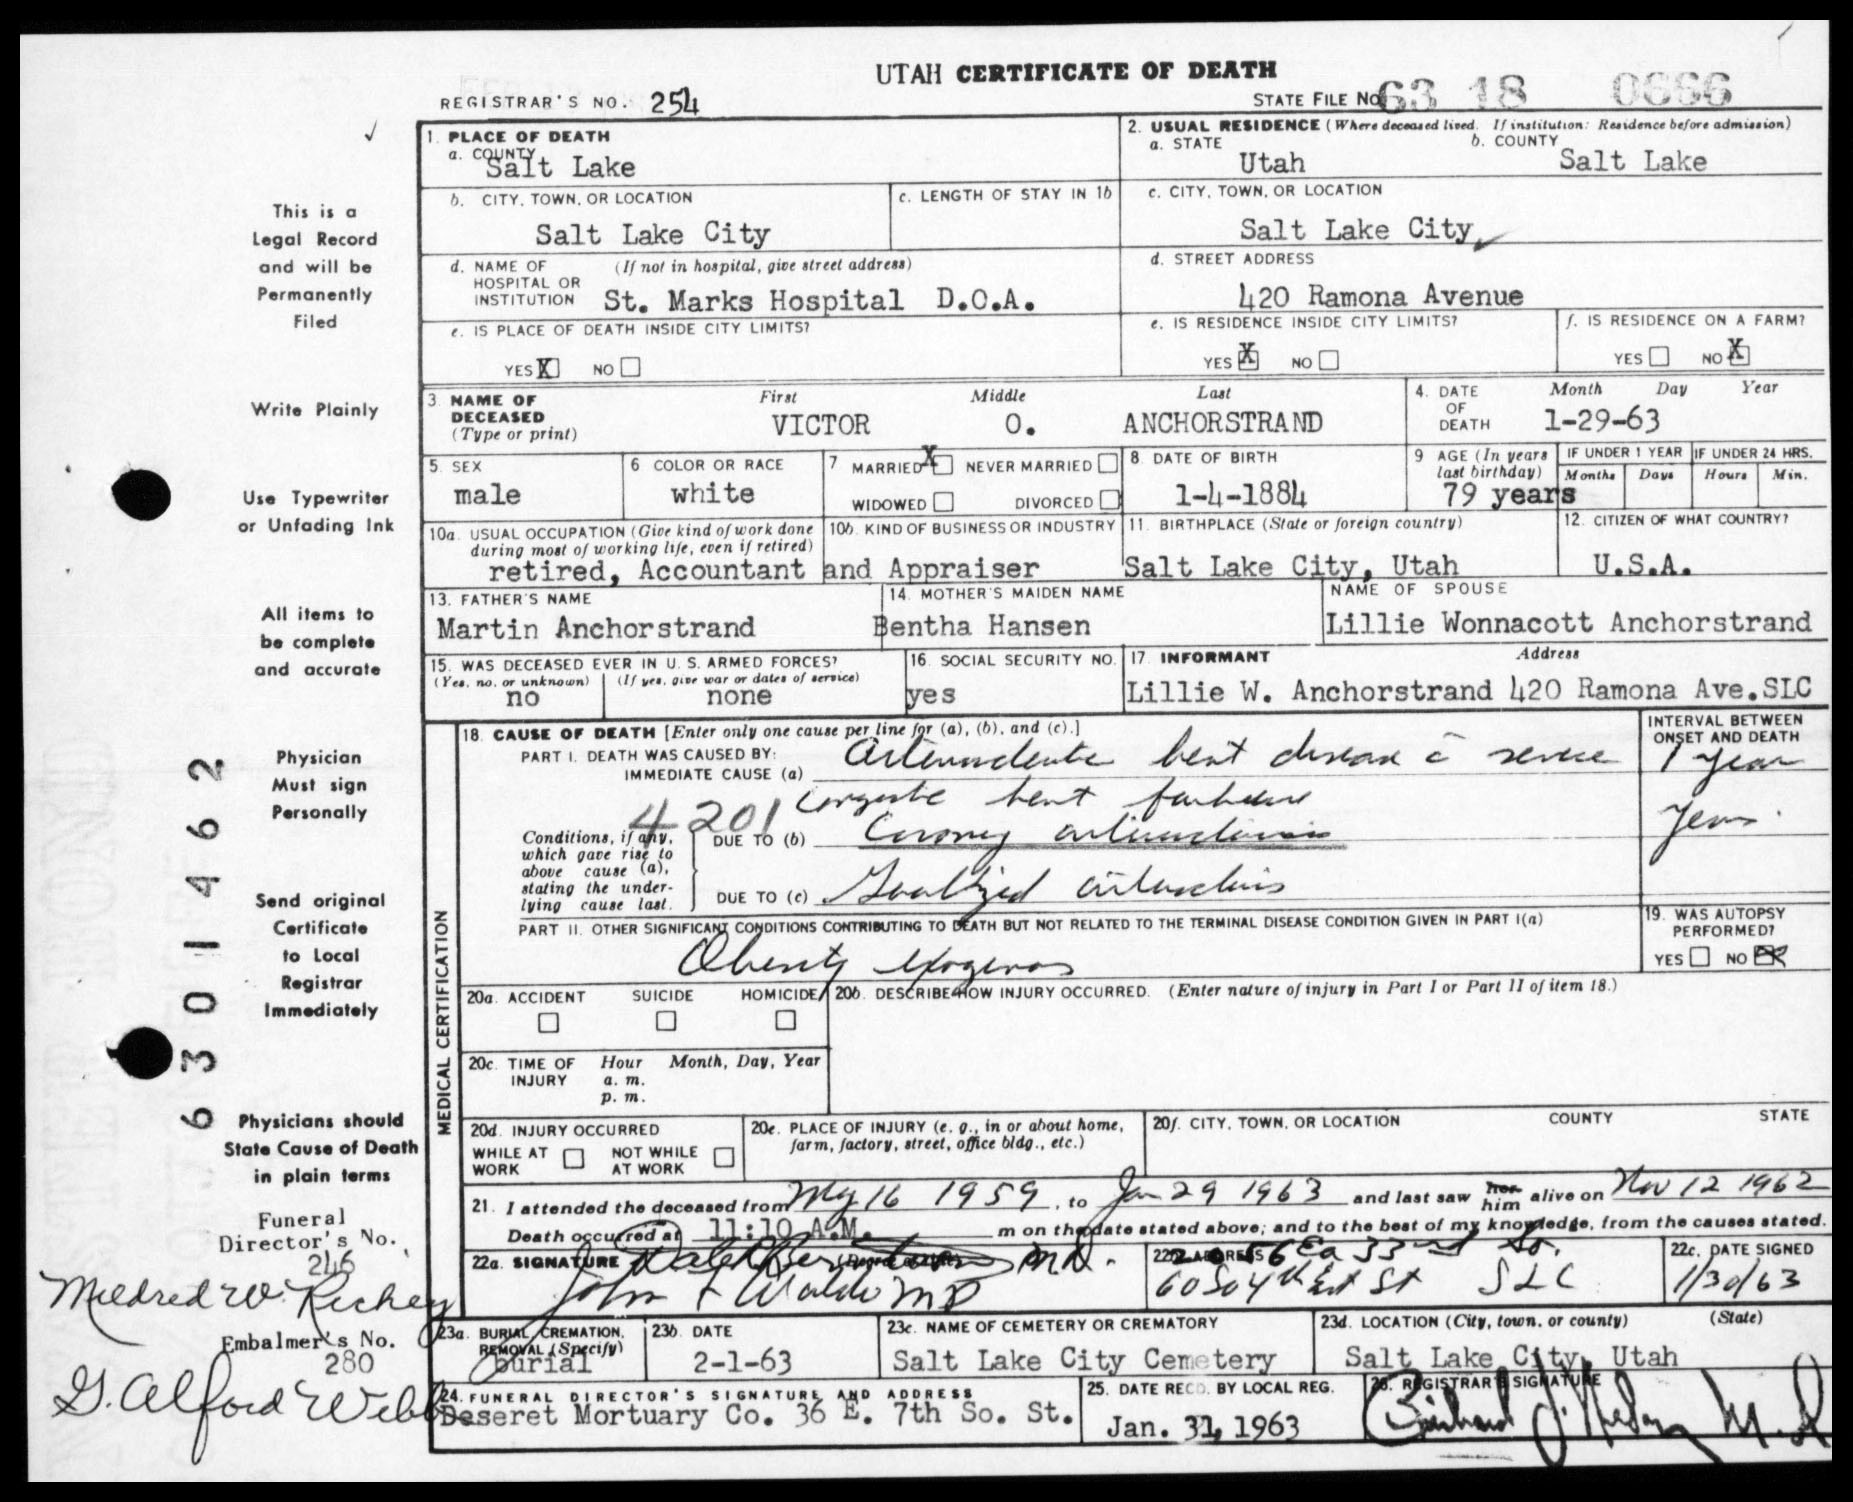 UTAH CERTIFICATE OF DEATH
REGISTRAR'S NO. 254
STATE FILE NO. 63 18 0666
1. PLACE OF DEATH
a. COUNTY
Salt Lake
2. USUAL RESIDENCE (Where deceased lived. If institution: Residence before admission)
a. STATE b. COUNTY
Utah Salt Lake
b. CITY, TOWN, OR LOCATION
Salt Lake City
c. LENGTH OF STAY IN 1b
c. CITY, TOWN, OR LOCATION
Salt Lake City
d. NAME OF HOSPITAL OR INSTITUTION (If not in hospital, give street address)
St. Marks Hospital D.O.A.
d. STREET ADDRESS
420 Ramona Avenue
e. IS PLACE OF DEATH INSIDE CITY LIMITS?
YES X NO
e. IS RESIDENCE INSIDE CITY LIMITS?
YES X NO
f. IS RESIDENCE ON A FARM?
YES NO X
3. NAME OF DECEASED (Type or print)
First Middle Last
VICTOR O. ANCHORSTRAND
4. DATE OF DEATH Month Day Year
1-29-63
5. SEX
male
6 COLOR OR RACE
white
7 MARRIED X NEVER MARRIED
WIDOWED DIVORCED
8. DATE OF BIRTH
1-4-1884
9 AGE (In years last birthday)
79 years
IF UNDER 1 YEAR IF UNDER 24 HRS.
Months Days Hours Min.
10a. USUAL OCCUPATION (Give kind of work done during most of working life, even if retired)
10b. KIND OF BUSINESS OR INDUSTRY
retired, Accountant and Appraiser
11. BIRTHPLACE (State or foreign country)
Salt Lake City, Utah
12. CITIZEN OF WHAT COUNTRY?
U.S.A.
13. FATHER'S NAME
Martin Anchorstrand
14. MOTHER'S MAIDEN NAME
Bentha Hansen
NAME OF SPOUSE
Lillie Wonnacott Anchorstrand
15. WAS DECEASED EVER IN U. S. ARMED FORCES?
(Yes, no, or unknown) (If yes, give war or dates of service)
no none
16. SOCIAL SECURITY NO.
yes
17. INFORMANT Address
Lillie W. Anchorstrand 420 Ramona Ave. SLC
MEDICAL CERTIFICATION
18. CAUSE OF DEATH [Enter only one cause per line for (a), (b), and (c).]
PART I. DEATH WAS CAUSED BY:
IMMEDIATE CAUSE (a) heart disease c severe
heart
4201
Conditions, if any, which gave rise to above cause (a), stating the underlying cause last.
DUE TO (b) Coronary
DUE TO (c)
INTERVAL BETWEEN ONSET AND DEATH
1 year
years
PART II. OTHER SIGNIFICANT CONDITIONS CONTRIBUTING TO DEATH BUT NOT RELATED TO THE TERMINAL DISEASE CONDITION GIVEN IN PART I(a)
Obesity exogenous
19. WAS AUTOPSY PERFORMED?
YES NO X
20a. ACCIDENT SUICIDE HOMICIDE
20b. DESCRIBE HOW INJURY OCCURRED. (Enter nature of injury in Part I or Part II of item 18.)
20c. TIME OF INJURY Hour Month, Day, Year
a. m.
p. m.
20d. INJURY OCCURRED
WHILE AT WORK NOT WHILE AT WORK
20e. PLACE OF INJURY (e. g., in or about home, farm, factory, street, office bldg., etc.)
20f. CITY, TOWN, OR LOCATION COUNTY STATE
21. I attended the deceased from May 16 1959, to Jan 29 1963 and last saw her him alive on Nov 12 1962
Death occurred at 11:10 A.M. m on the date stated above; and to the best of my knowledge, from the causes stated.
22a. SIGNATURE (Degree or title) M.D.
John F Waldo MD
22b. ADDRESS
2056 Ea 33rd So.
60 So 4th East St SLC
22c. DATE SIGNED
1/30/63
23a. BURIAL, CREMATION, REMOVAL (Specify)
burial
23b. DATE
2-1-63
23c. NAME OF CEMETERY OR CREMATORY
Salt Lake City Cemetery
23d. LOCATION (City, town, or county) (State)
Salt Lake City, Utah
24. FUNERAL DIRECTOR'S SIGNATURE AND ADDRESS
Deseret Mortuary Co. 36 E. 7th So. St.
25. DATE RECD. BY LOCAL REG.
Jan. 31, 1963
26. REGISTRAR'S SIGNATURE
This is a
Legal Record
and will be
Permanently
Filed
Write Plainly
Use Typewriter
or Unfading Ink
All items to
be complete
and accurate
Physician
Must sign
Personally
Send original
Certificate
to Local
Registrar
Immediately
Physicians should
State Cause of Death
in plain terms
6301462
Funeral
Director's No.
246
Mildred W. Richey
Embalmer's No.
280
G. Alford Webb